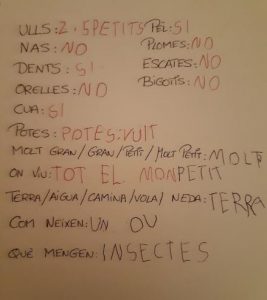 ULLS: 2 · 5 PETITS PÈL: SI
NAS: NO PLOMES: NO
DENTS: SI ESCATES: NO
ORELLES: NO BIGOTIS: NO
CUA: SI
POTES: POTES: VUIT
MOLT GRAN / GRAN / PETIT / MOLT PETIT: MOLT
ON VIU: TOT EL MON PETIT
TERRA/AIGUA/CAMINA/VOLA/ NEDA: TERRA
COM NEIXEN: UN OU
QUÈ MENGEN: INSECTES